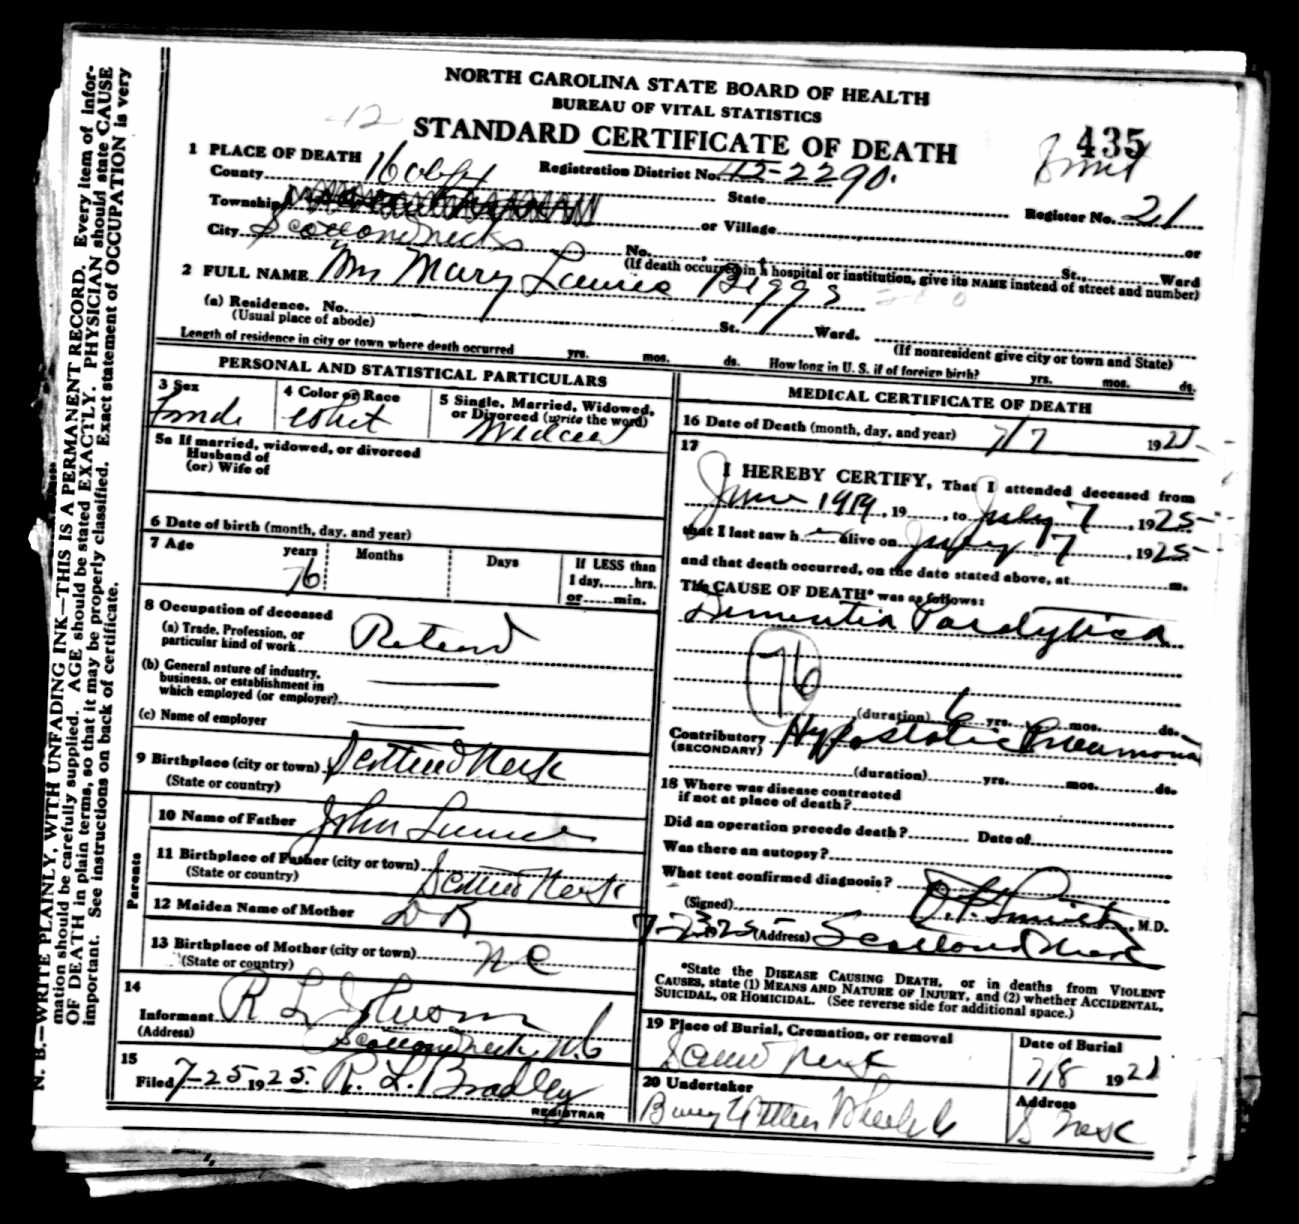 NORTH CAROLINA STATE BOARD OF HEALTH
BUREAU OF VITAL STATISTICS
12
STANDARD CERTIFICATE OF DEATH
435
1 PLACE OF DEATH
County Registration District No. 42-2290. State Register No. 21
Township or Village or
City No. St., Ward
(If death occurred in a hospital or institution, give its NAME instead of street and number)
2 FULL NAME Mrs Mary Biggs
(a) Residence. No. St. Ward.
(Usual place of abode) (If nonresident give city or town and State)
Length of residence in city or town where death occurred yrs. mos. ds. How long in U. S. if of foreign birth? yrs. mos. ds.
PERSONAL AND STATISTICAL PARTICULARS
3 Sex 4 Color or Race 5 Single, Married, Widowed, or Divorced (write the word)
5a If married, widowed, or divorced
Husband of
(or) Wife of
6 Date of birth (month, day, and year)
7 Age years Months Days If LESS than
76 1 day,......hrs.
or......min.
8 Occupation of deceased
(a) Trade, Profession, or
particular kind of work
(b) General nature of industry,
business, or establishment in
which employed (or employer)
(c) Name of employer
9 Birthplace (city or town)
(State or country)
Parents
10 Name of Father John
11 Birthplace of Father (city or town)
(State or country)
12 Maiden Name of Mother D K
13 Birthplace of Mother (city or town) N C
(State or country)
14
Informant R L
(Address) N.C
15
Filed 7-25 1925. R. L. Bradley
REGISTRAR
MEDICAL CERTIFICATE OF DEATH
16 Date of Death (month, day, and year) 7/7 192
17
I HEREBY CERTIFY, That I attended deceased from
June 1919, 19 , to July 7, 1925
that I last saw h alive on July 7, 1925
and that death occurred, on the date stated above, at m.
The CAUSE OF DEATH* was as follows:
Dementia Paralytica
76
(duration) 6 yrs. mos. ds.
Contributory Hypostatic Pneumonia
(SECONDARY)
(duration) yrs. mos. ds.
18 Where was disease contracted
if not at place of death?
Did an operation precede death? Date of
Was there an autopsy?
What test confirmed diagnosis?
(Signed) Smith, M.D.
7-23 1925 (Address) Scotland Neck
*State the DISEASE CAUSING DEATH, or in deaths from VIOLENT
CAUSES, state (1) MEANS AND NATURE OF INJURY, and (2) whether ACCIDENTAL,
SUICIDAL, OR HOMICIDAL. (See reverse side for additional space.)
19 Place of Burial, Cremation, or removal Date of Burial
7/8 192
20 Undertaker Address
N. B.—WRITE PLAINLY, WITH UNFADING INK—THIS IS A PERMANENT RECORD. Every item of infor-
mation should be carefully supplied. AGE should be stated EXACTLY. PHYSICIAN should state CAUSE
OF DEATH in plain terms, so that it may be properly classified. Exact statement of OCCUPATION is very
important. See instructions on back of certificate.